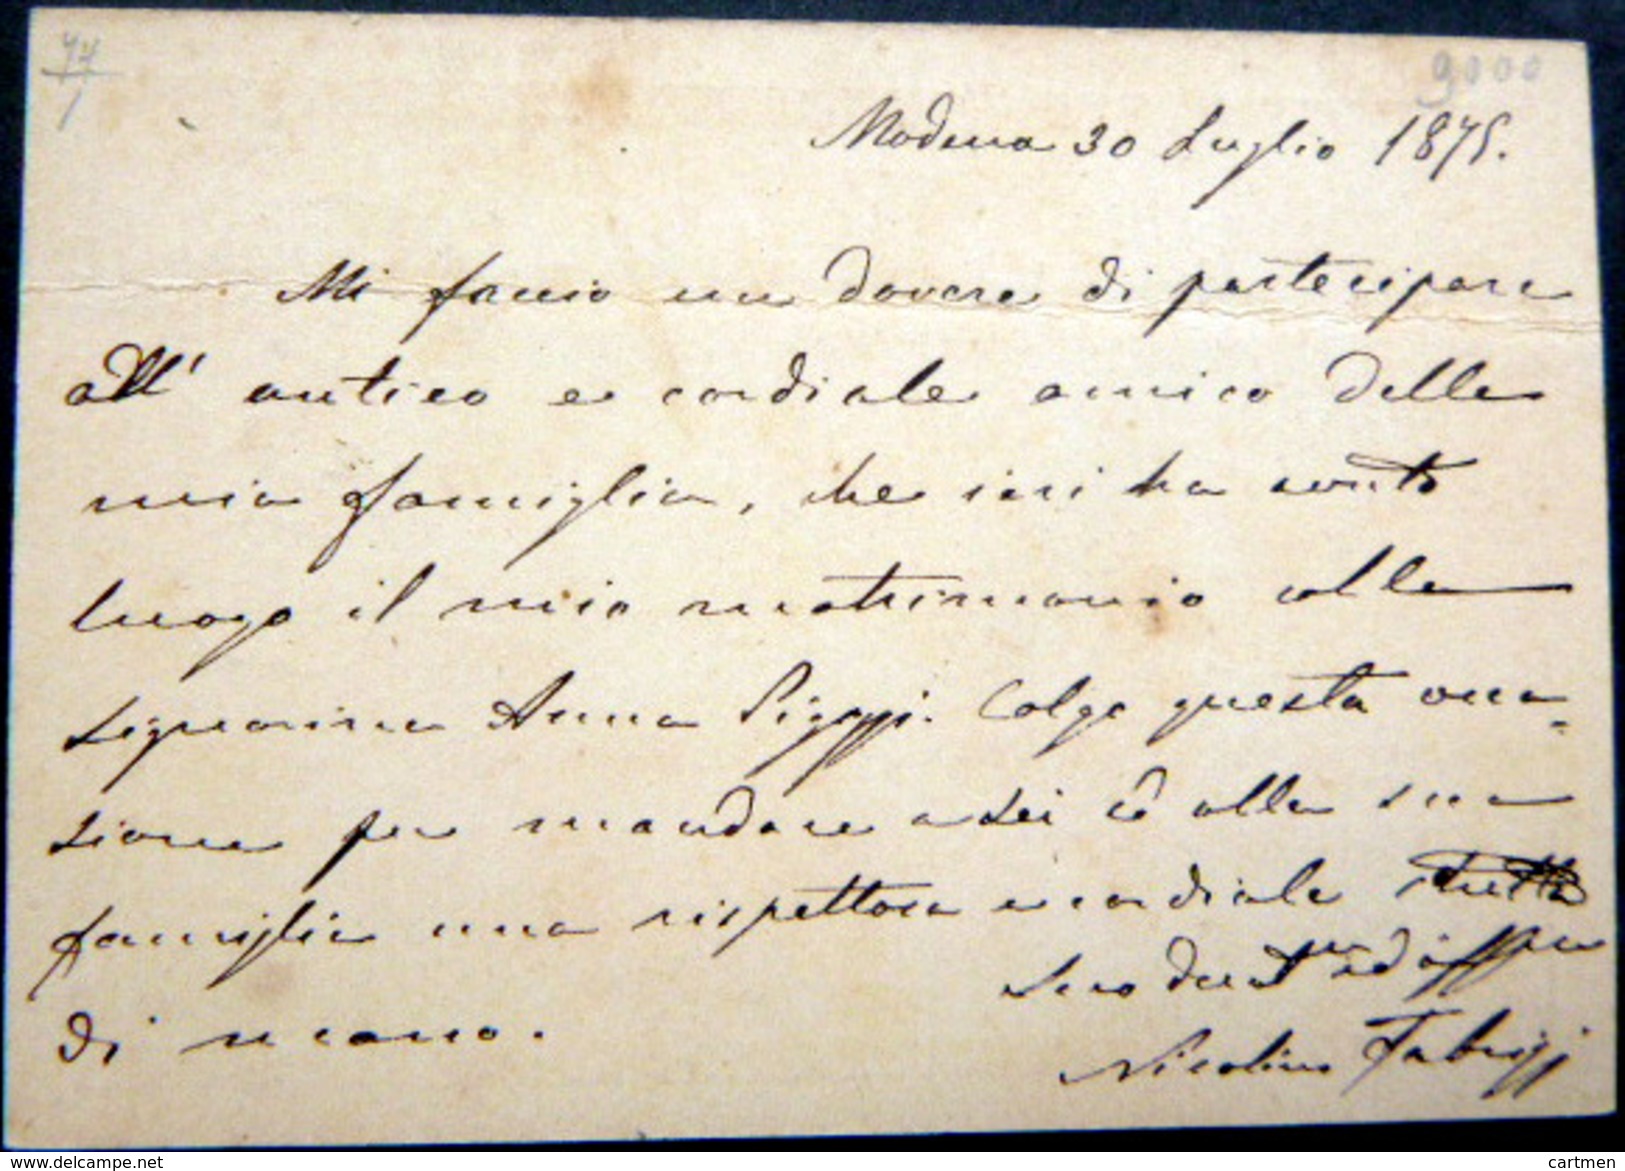 74
1
9000
Modena 30 Luglio 1875.
Mi faccio un dovere di partecipare
all' antico e cordiale amico della
mia famiglia, che ieri ha avuto
luogo il mio matrimonio colla
signorina Anna Colgo questa occa=
sione per mandare a Lei e alla sua
famiglia una rispettosa e cordiale stretta
di mano.
Suo ed
Nicolino Fabrizj
www.delcampe.net
cartmen